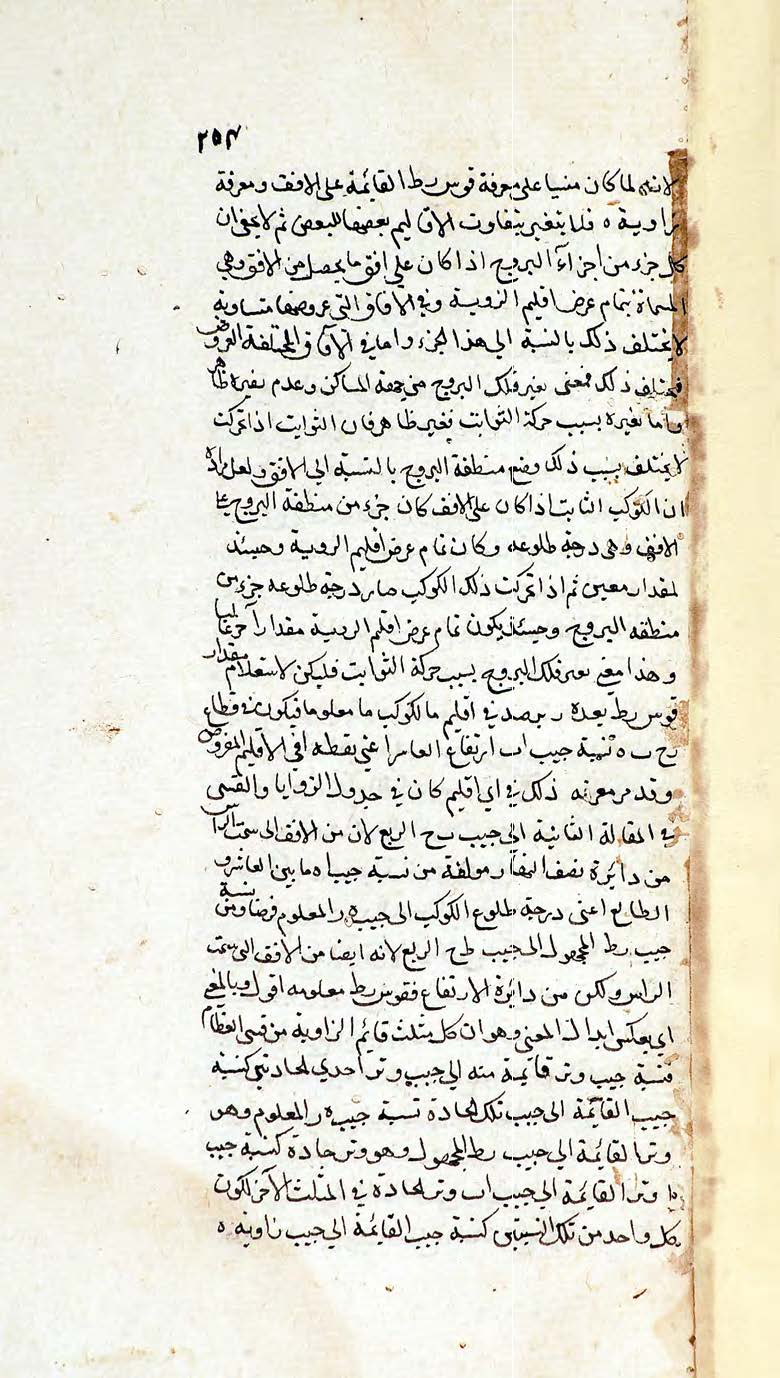 ٢٥٤
لانه لما كان منبيا على معرفة قوس رط القائمة على الافق ومعرفة
زاوية ه فلا يتغير بتفاوت الاقاليم بعضها للبعض ثم لا يخفى ان
كل جزء من اجزاء البروج اذا كان على افق ما يحصل من الافق وهي
المسماة بتمام عرض اقليم الروية وفي الافاق التي عروضها متساوية
لا يختلف ذلك بالنسبة الى هذا الجزء واما في الآفاق المختلفة العروض
فيختلف ذلك فمعنى تغير فلك البروج من جهة المساكن وعدم تغيره ظاهر
واما تغيره بسبب حركة الثوابت فغير ظاهر فان الثوابت اذا تحركت
لا يختلف بسبب ذلك وضع منطقة البروج بالنسبة الى الافق ولعل مراده
ان الكوكب الثابت اذا كان على الافق كان جزء من منطقة البروج على
الافق وهي درجة طلوعه وكان تمام عرض اقليم الروية وحينئذ
لمقدار معين ثم اذا تحركت ذلك الكوكب صار درجة طلوعه جزء من
منطقه البروج وحينئذ يكون تمام عرض اقليم الروية مقدارآ آخر غالبا
وهذا معنى تغير فلك البروج بسبب حركة الثوابت فليكن لاستعلام مقدار
قوس رط بعده ر يرصد في اقليم ما لكوكب ما معلوما فيكون في قطاع
رح ب ه نسبة جيب اب ارتفاع العاشر اعني نقطه ا في الاقليم المفروض
وقد مر معرفة ذلك في اي اقليم كان في جدول الزوايا والقسى
في المقالة الثانية الى جيب ب ح الربع لان من الافق الى سمت الراس
من دائرة نصف النهار مولفة من نسبة جيب اه ما بين العاشر و
الطالع اعنى درجة طلوع الكوكب الى جيب ه ر المعلوم فرضا ومن نسبة
جيب رط المجهول الى جيب طح الربع لانه ايضا من الافق الى سمت
الراس ولكن من دائرة الارتفاع فقوس رط معلومه اقول وبالمغني
اي بعكس ابدال المغني وهو ان كل مثلث قائم الزاوية من قسى العظام
فنسبة جيب وتر قايمة منه الى جيب وتر احدي لحادتين كنسبة
جيب القائمة الى جيب تلك الحادة نسبة جيب ه ر المعلوم وهو
وتر القائمة الى جيب رط المجهول وهو وتر حادة كنسبة جيب
ه ا وتر القائمة الى جيب اب وتر لحادة في المثلث الآخر لكون
كل واحد من تلك النسبتين كنسبة جيب القايمة الى جيب زاوية ه